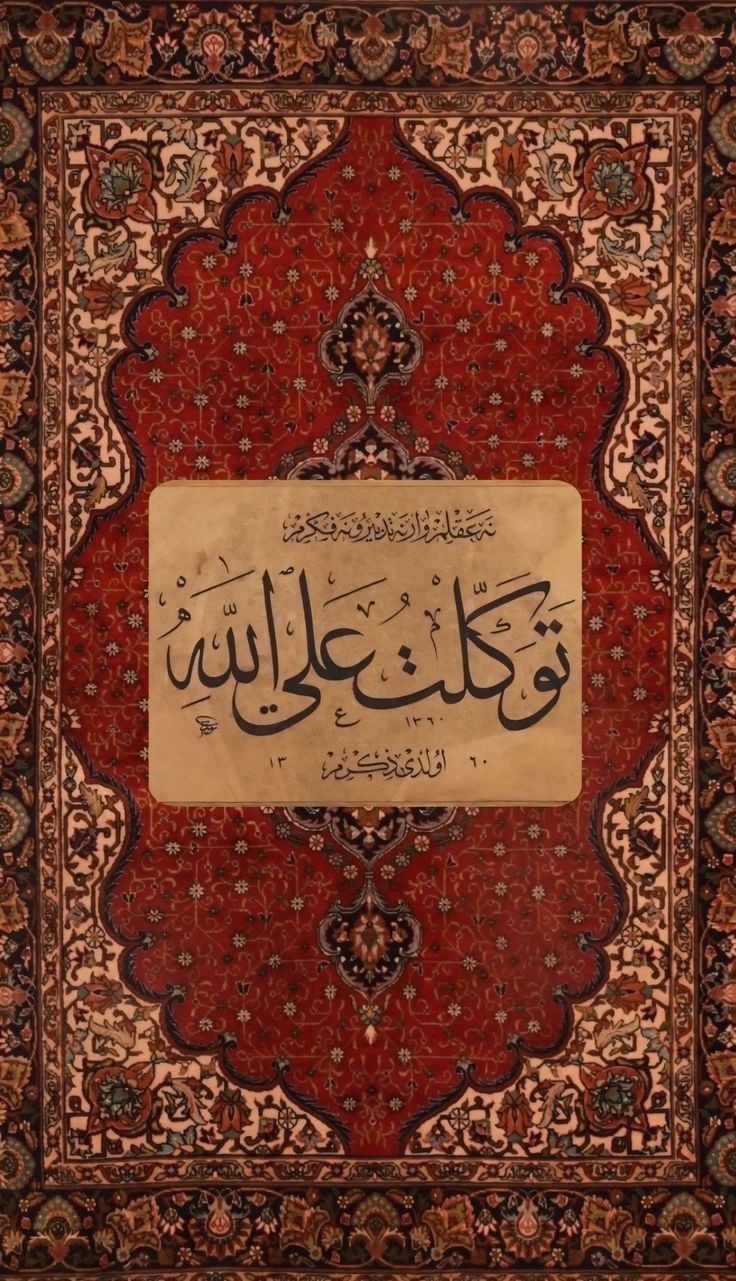 نه عقلم وار نه تدبير و نه فكرم
توكلت على الله
١٣٦٠
١٣ اولدى ذكرم ٦٠